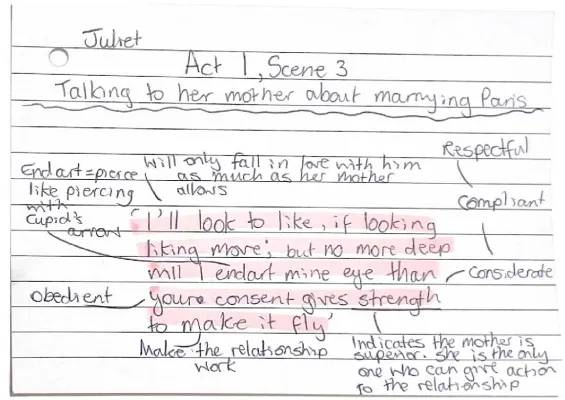 Juliet
Act 1, Scene 3
Talking to her mother about marrying Paris
Respectful
Compliant
Considerate
Will only fall in love with him
as much as her mother
allows
Endart = pierce
like piercing
with
Cupid's
arrow
'I'll look to like, if looking
liking move; but no more deep
will I endart mine eye than
youre consent gives strength
to make it fly'
obedient
Make the relationship
work
Indicates the mother is
superior. She is the only
one who can give action
to the relationship